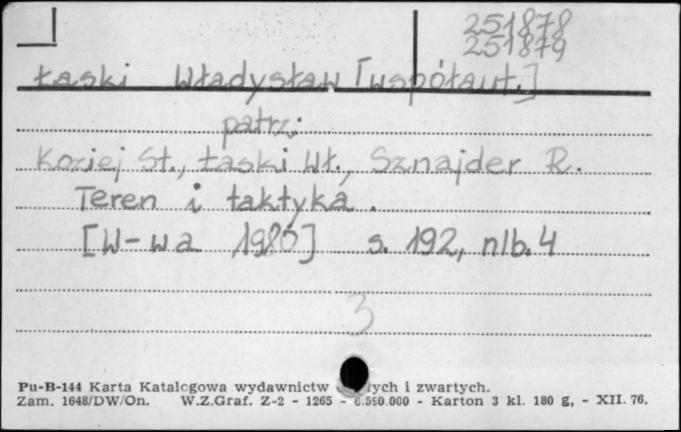 251878
251879
Łaski Władysław [współaut.]
patrz:
Koziej St., Łaski Wł., Sznajder R.
Teren i taktyka.
[W-wa 1980] s. 192, nlb. 4
3
Pu-B-144 Karta Katalogowa wydawnictw i zwartych.
Zam. 1648/DW/On. W.Z.Graf. Z-2 - 1265 - 6.590.000 - Karton 3 kl. 180 g, - XII. 76.